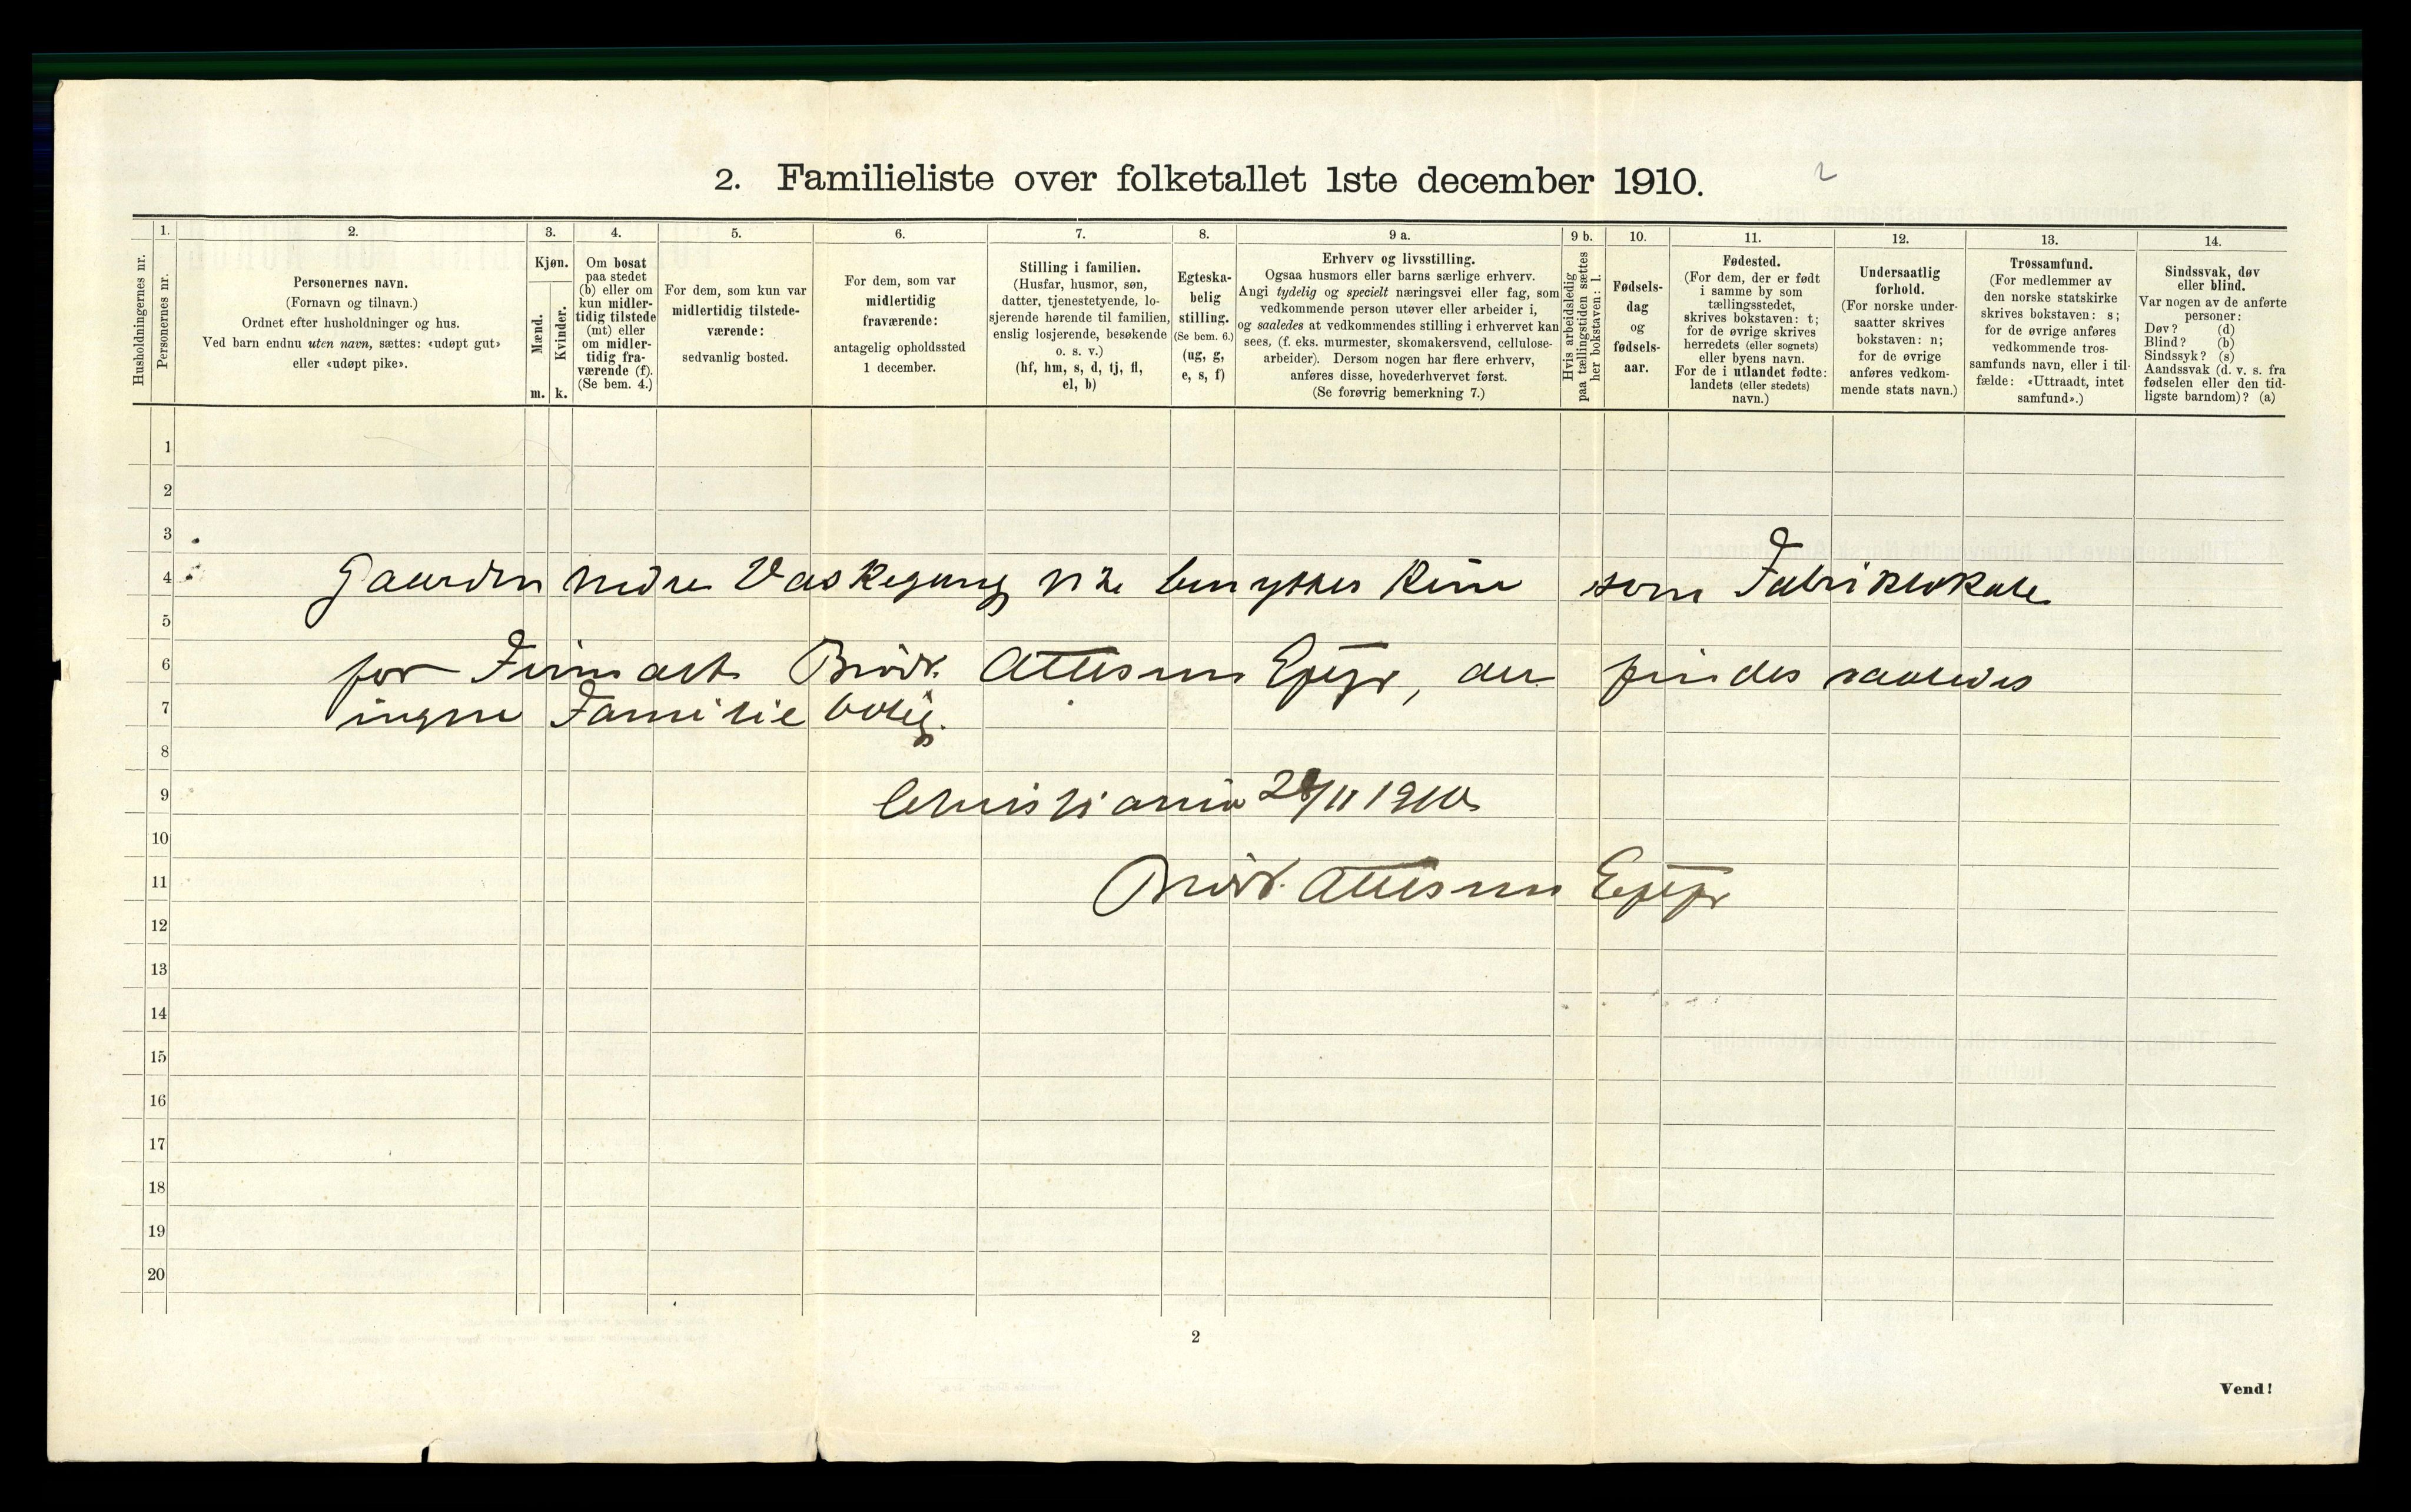 2. Familieliste over folketallet 1ste december 1910.
2
Husholdningernes nr.
1.
Personernes nr.
2.
Personernes navn.
(Fornavn og tilnavn.)
Ordnet efter husholdninger og hus.
Ved barn endnu uten navn, sættes: «udøpt gut»
eller «udøpt pike».
3.
Kjøn.
Mænd.
Kvinder.
m. k.
4.
Om bosat
paa stedet
(b) eller om
kun midler-
tidig tilstede
(mt) eller
om midler-
tidig fra-
værende (f).
(Se bem. 4.)
5.
For dem, som kun var
midlertidig tilstede-
værende:
sedvanlig bosted.
6.
For dem, som var
midlertidig
fraværende:
antagelig opholdssted
1 december.
7.
Stilling i familien.
(Husfar, husmor, søn,
datter, tjenestetyende, lo-
sjerende hørende til familien,
enslig losjerende, besøkende
o. s. v.)
(hf, hm, s, d, tj, fl,
el, b)
8.
Egteska-
belig
stilling.
(Se bem. 6.)
(ug, g,
e, s, f)
9 a.
Erhverv og livsstilling.
Ogsaa husmors eller barns særlige erhverv.
Angi tydelig og specielt næringsvei eller fag, som
vedkommende person utøver eller arbeider i,
og saaledes at vedkommendes stilling i erhvervet kan
sees, (f. eks. murmester, skomakersvend, cellulose-
arbeider). Dersom nogen har flere erhverv,
anføres disse, hovederhvervet først.
(Se forøvrig bemerkning 7.)
9 b.
Hvis arbeidsledig
paa tællingstiden sættes
her bokstaven: l.
10.
Fødsels-
dag
og
fødsels-
aar.
11.
Fødested.
(For dem, der er født
i samme by som
tællingsstedet,
skrives bokstaven: t;
for de øvrige skrives
herredets (eller sognets)
eller byens navn.
For de i utlandet fødte:
landets (eller stedets)
navn.)
12.
Undersaatlig
forhold.
(For norske under-
saatter skrives
bokstaven: n;
for de øvrige
anføres vedkom-
mende stats navn.)
13.
Trossamfund.
(For medlemmer av
den norske statskirke
skrives bokstaven: s;
for de øvrige anføres
vedkommende tros-
samfunds navn, eller i til-
fælde: «Uttraadt, intet
samfund».)
14.
Sindssvak, døv
eller blind.
Var nogen av de anførte
personer:
Døv? (d)
Blind? (b)
Sindssyk? (s)
Aandssvak (d. v. s. fra
fødselen eller den tid-
ligste barndom)? (a)
1
2
3
4
Gaarden nedre Vaskegang benyttes kun som Fabriklokale
5
6
for Firmaet Brödr. Ottesen Eftf, der findes saaledes
7
ingen Familie bolig.
8
9
Christiania 28/11 1910
10
11
Brödr. Ottesen Eftf
12
13
14
15
16
17
18
19
20
2
Vend!